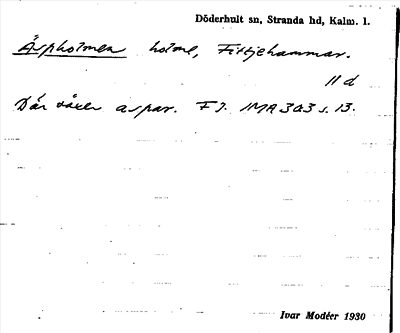 Döderhult sn, Stranda hd, Kalm. l.
Äspholmen holme, Fittjehammar.
11 d
Där växer aspar. F J. IMA 303 s. 13.
Ivar Modéer 1930